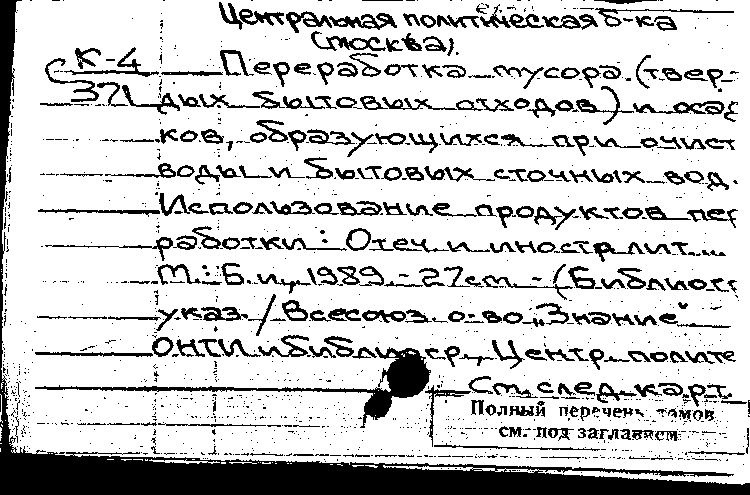 Центральная политическая б-ка
(Москва).
К-4 Переработка мусора (твер-
371 дых бытовых отходов) и осад
ков, образующихся при очист
воды и бытовых сточных вод.
Использование продуктов пер
работки: Отеч. и иностр. лит...
М.: Б. и., 1989. - 27 см. - (Библиогр
указ. / Всесоюз. о-во „Знание"
ОНТИ и библиогр., Центр. полите
См. след. карт.
Полный перечень томов
см. под заглавием